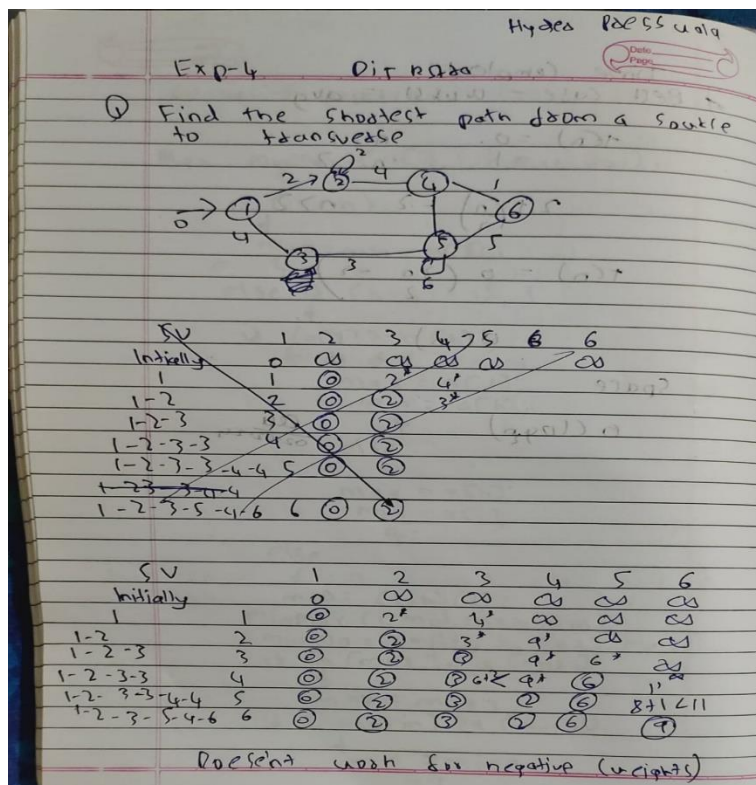 Date
Page
Exp-4
Q Find the shortest path from a source
to transverse
2 2 4 1
0 1 2 4 6
4 3 3 5 5
6
SV 1 2 3 4 5 6 6
Initially 0 ∞ ∞ ∞ ∞ ∞
1 1 0 2* 4*
1-2 2 0 2 3*
1-2-3 3 0 2
1-2-3-3 4 0 2
1-2-3-3-4-4 5 0 2
1-2-3-5-4-6 6 0 2
SV 1 2 3 4 5 6
Initially 0 ∞ ∞ ∞ ∞ ∞
1 1 0 2* 4* ∞ ∞ ∞
1-2 2 0 2 3* 9* ∞ ∞
1-2-3 3 0 2 3 9* 6* ∞
1-2-3-3 4 0 2 3 9* 6
1-2-3-3-4-4 5 0 2 3 2 6 8+1<11
1-2-3-5-4-6 6 0 2 3 2 6 9
Doesent work for negative (weights)